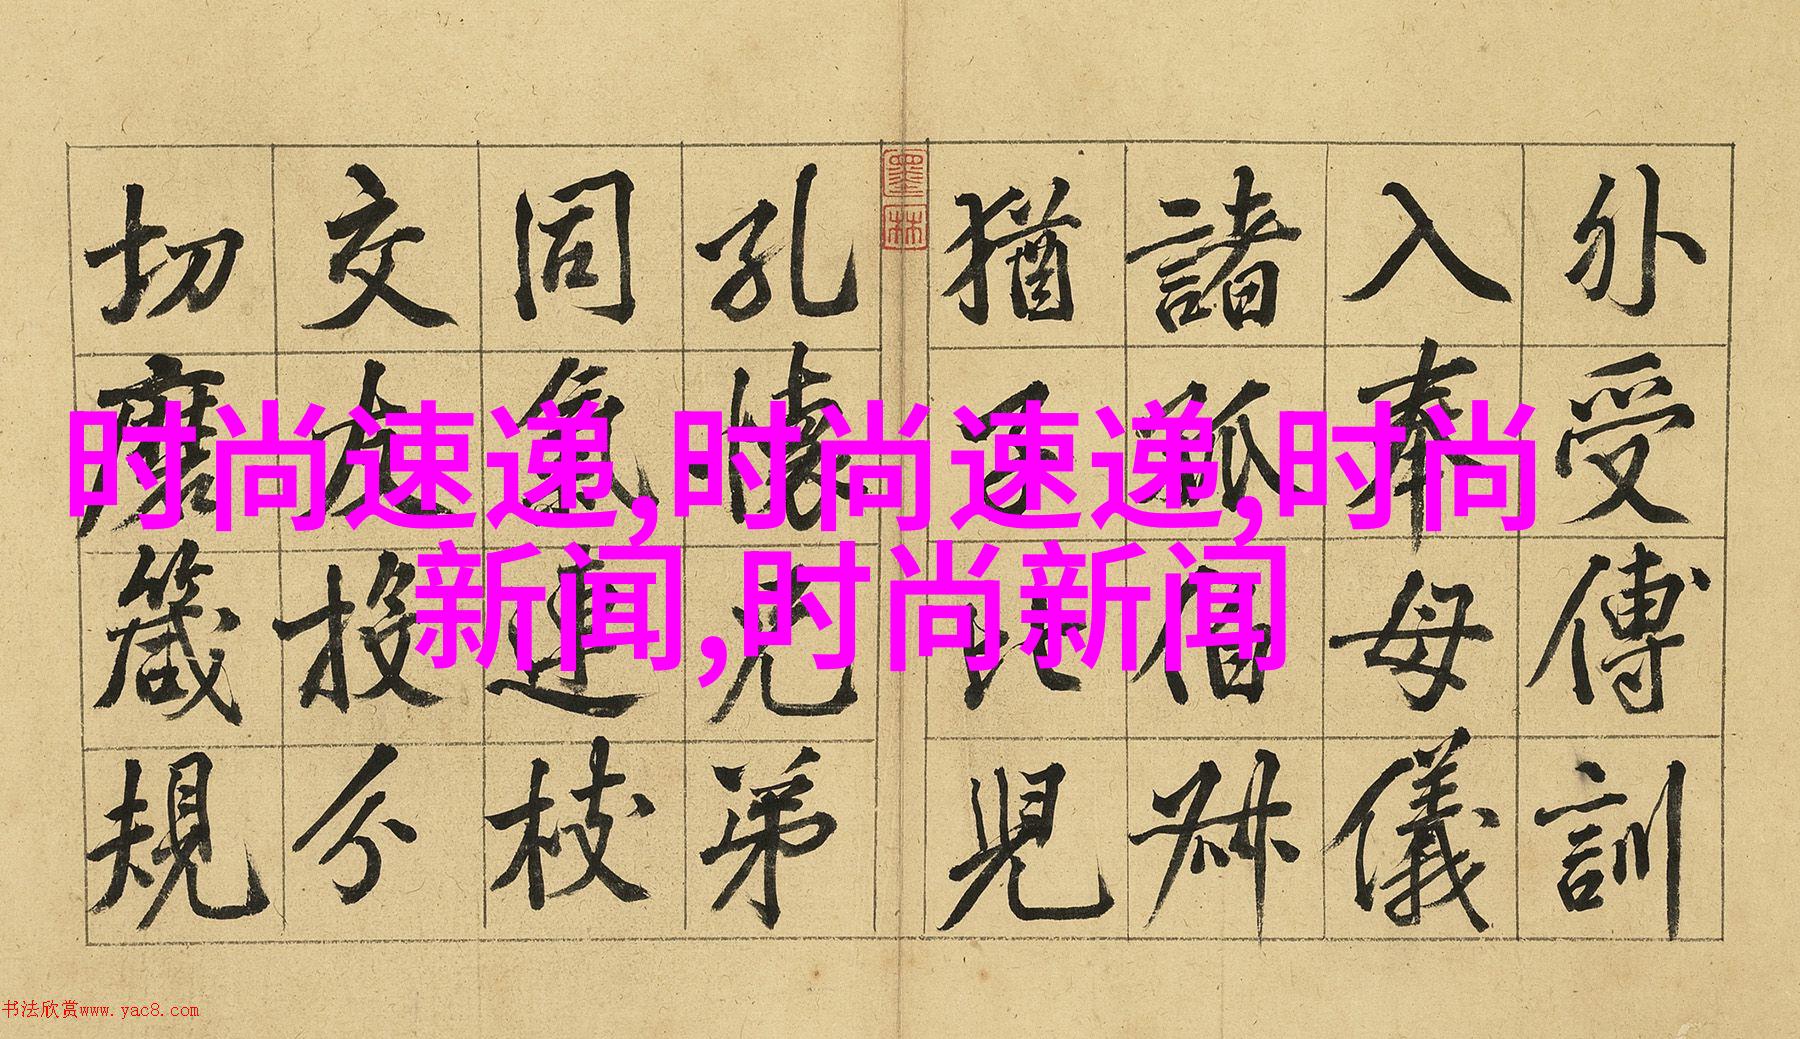 外受傅訓
入奉母儀
諸姑伯叔
猶子比兒
孔懷兄弟
同氣連枝
交友投分
切磨箴規
墨林
时尚速递,时尚速递,时尚
新闻,时尚新闻
书法欣赏www.yac8.com